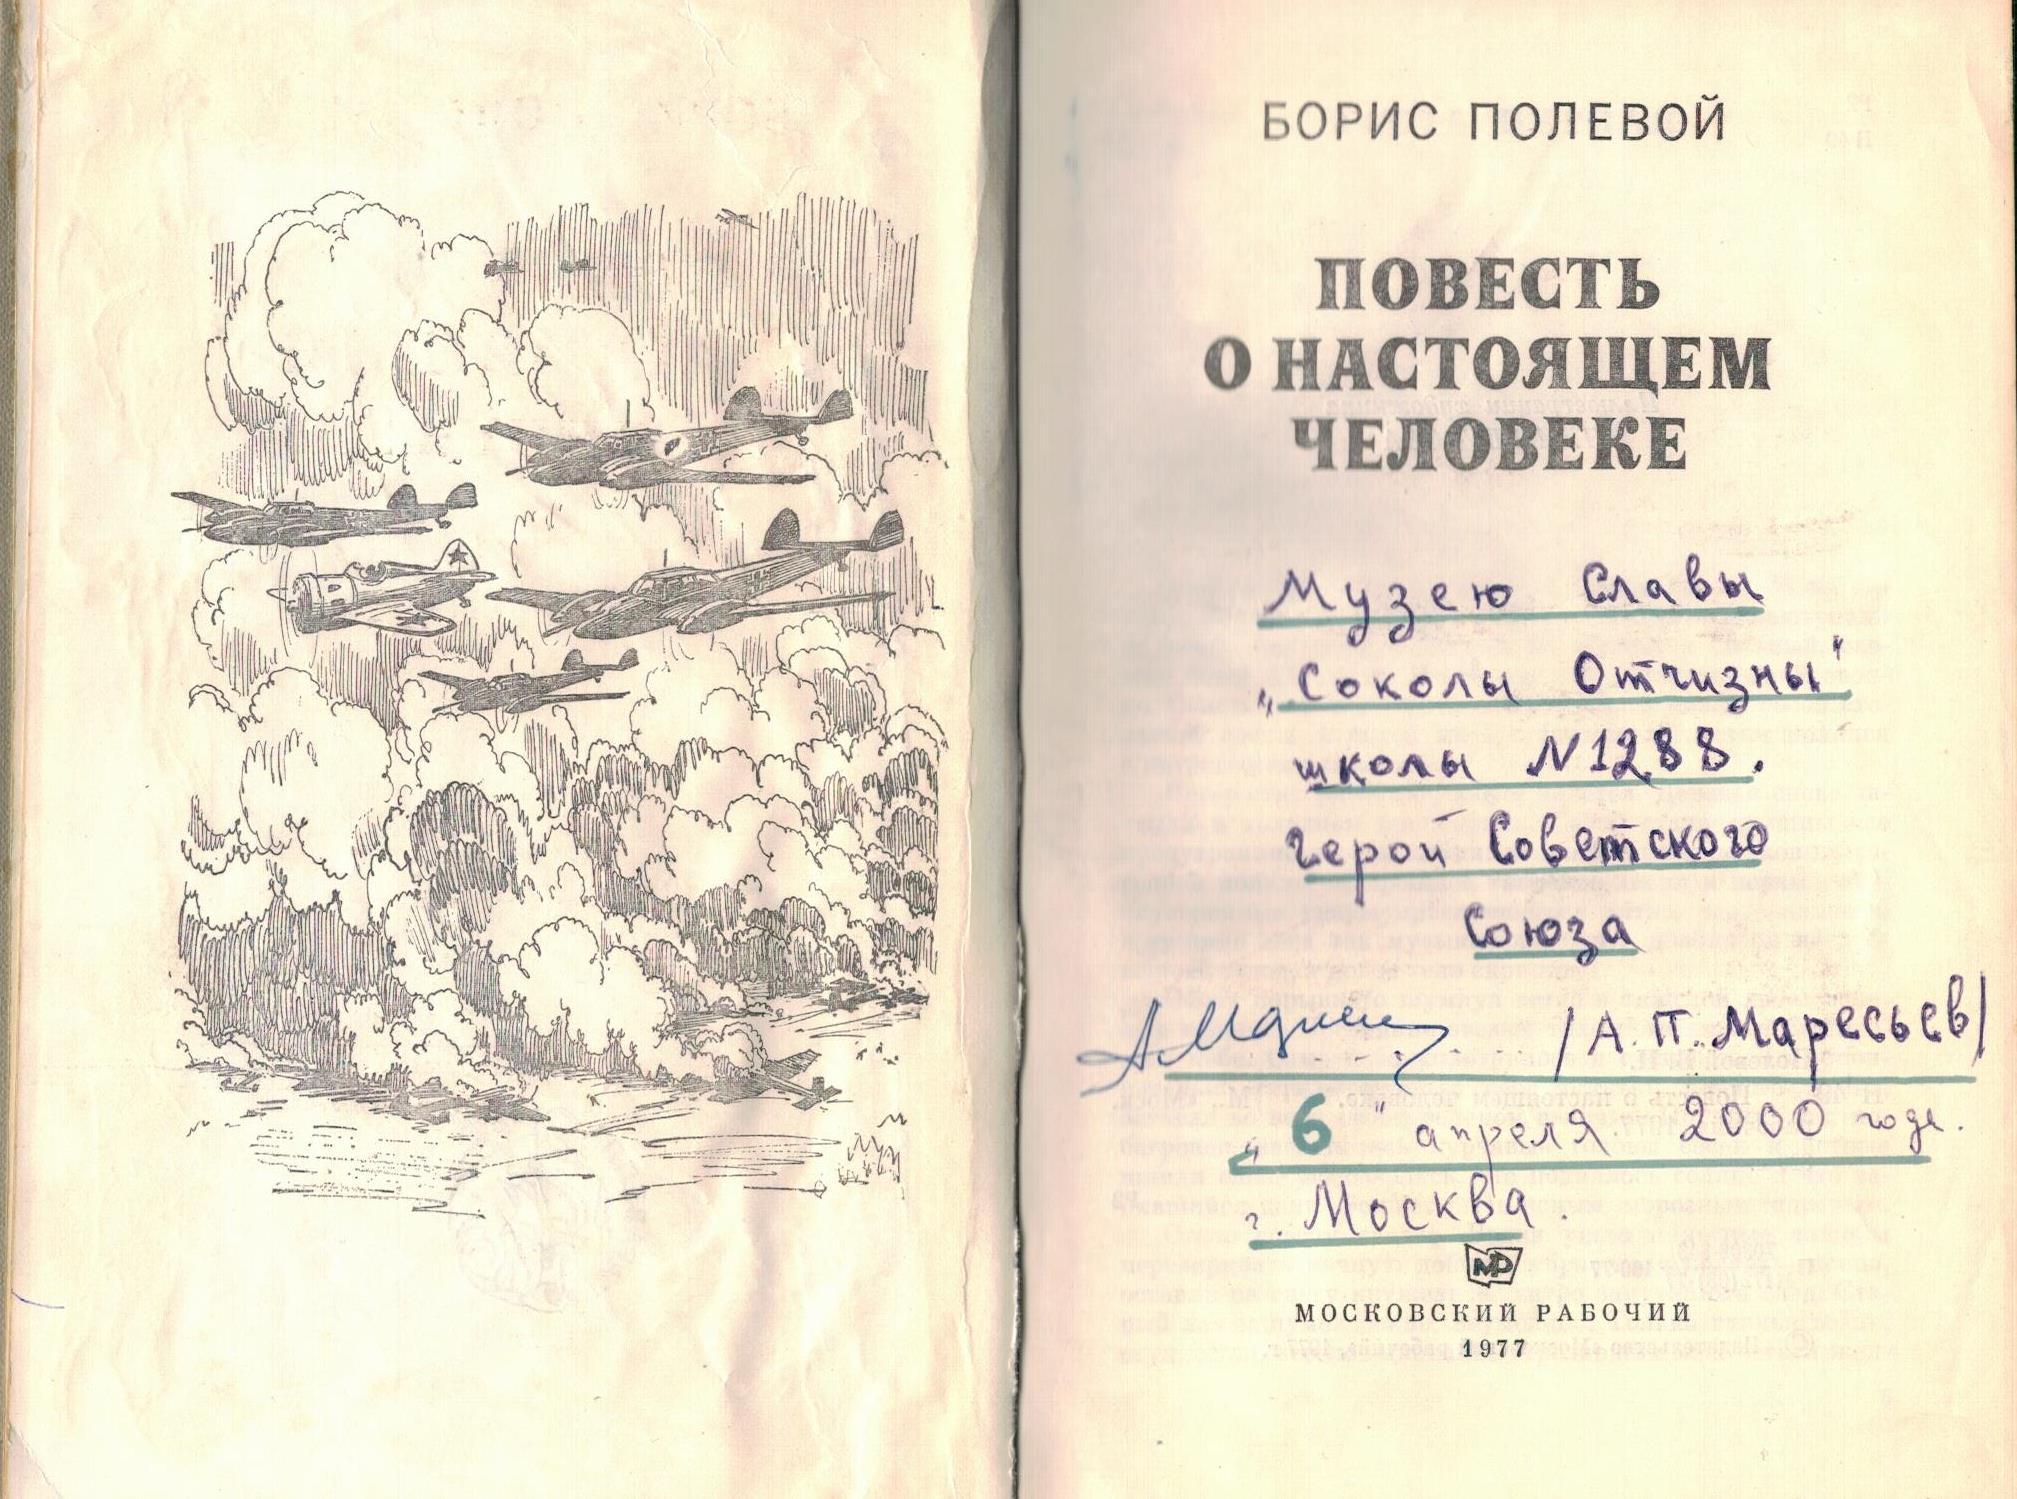 БОРИС ПОЛЕВОЙ
ПОВЕСТЬ
О НАСТОЯЩЕМ
ЧЕЛОВЕКЕ
Музею Славы
„Соколы Отчизны"
школы N1288.
герой Советского
Союза
/А. П. Маресьев/
„6" апреля 2000 годе.
г. Москва.
МР
МОСКОВСКИЙ РАБОЧИЙ
1977